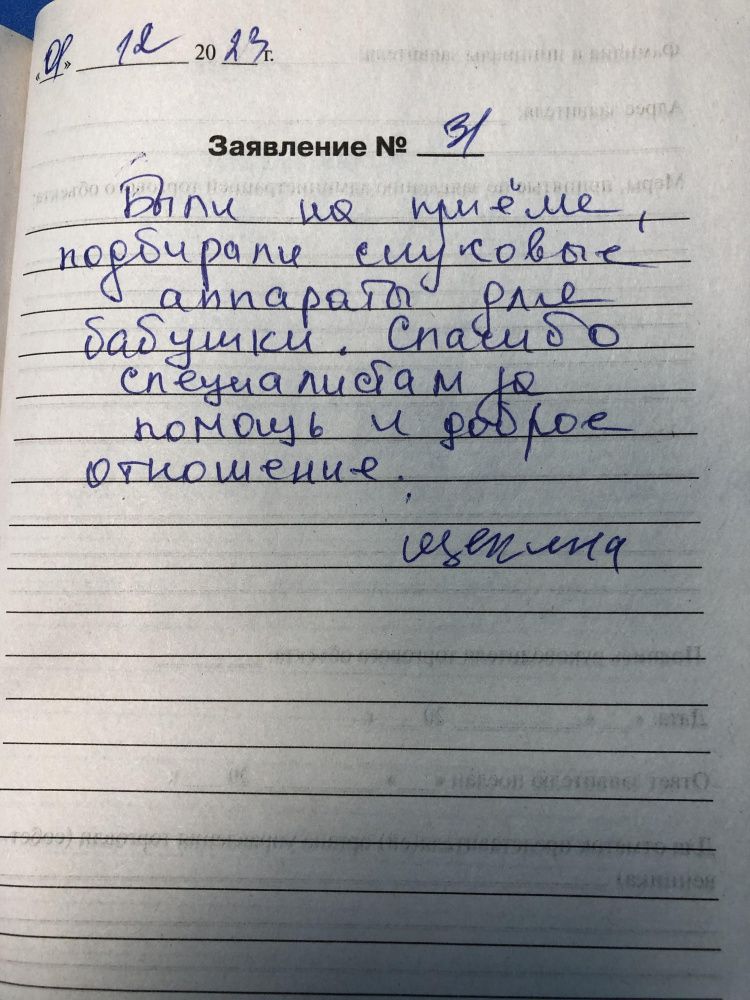 «09» 12 2023 г.
Заявление № 31
Были на приёме,
подбирали слуховые
аппараты для
бабушки. Спасибо
специалистам за
помощь и доброе
отношение.